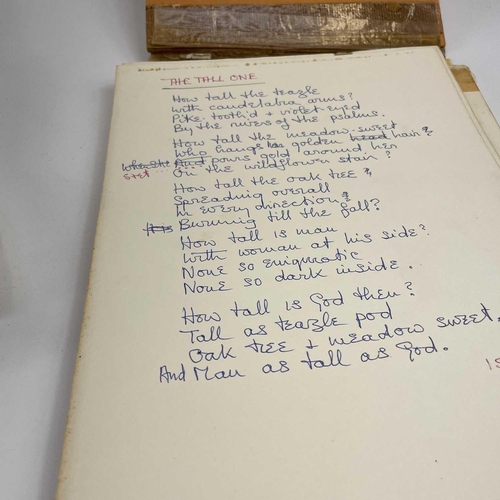 THE TALL ONE
How tall the teazle
with candelabra arms?
Pike tooth'd + violet eyed
By the runes of the psalms.
How tall the meadow-sweet
Who hangs her golden head hair &
And pours gold around her
stet
On the wildflower stair?
How tall the oak tree,
Spreading overall
In every direction &
Burning till the fall?
How tall is man
With woman at his side?
None so enigmatic
None so dark inside.
How tall is God then?
Tall as teazle pod
Oak tree + meadow sweet,
And Man as tall as God.